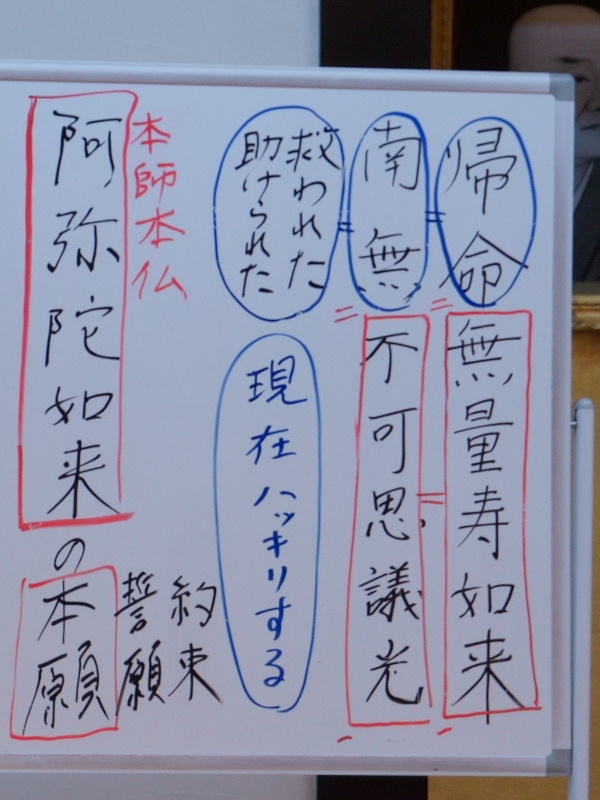 帰命無量寿如来
南無不可思議光
救われた
助けられた
現在ハッキリする
本師本仏
阿弥陀如来の本願
約束
誓願